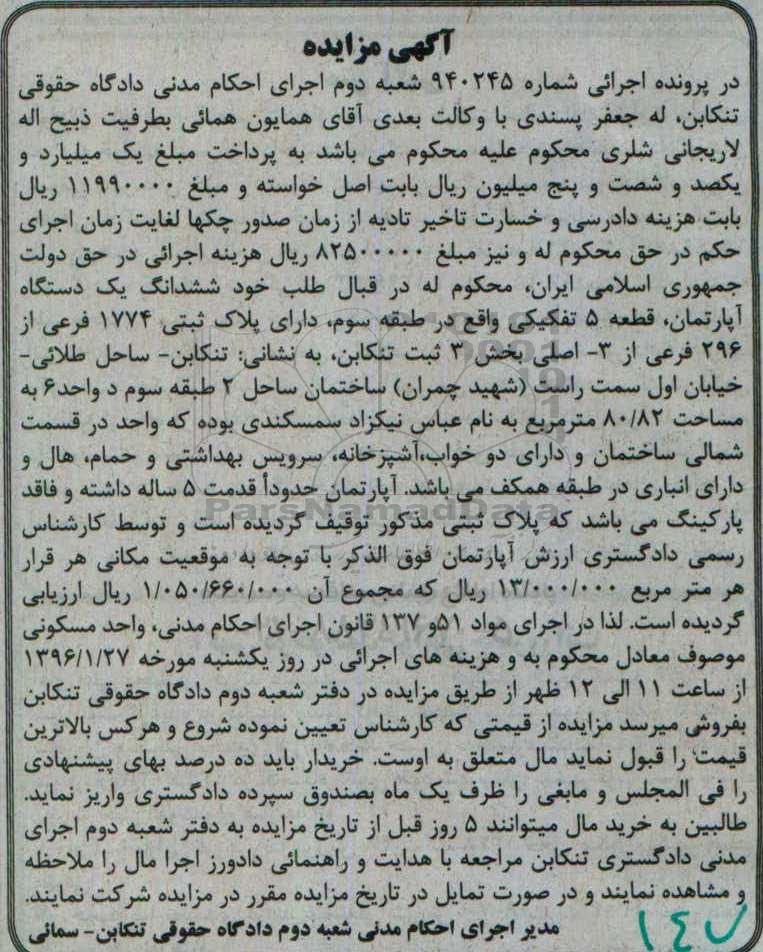 آگهی مزایده
در پرونده اجرائی شماره ۹۴۰۲۴۵ شعبه دوم اجرای احکام مدنی دادگاه حقوقی
تنکابن، له جعفر پسندی با وکالت بعدی آقای همایون همائی بطرفیت ذبیح اله
لاریجانی شلری محکوم علیه محکوم می باشد به پرداخت مبلغ یک میلیارد و
یکصد و شصت و پنج میلیون ریال بابت اصل خواسته و مبلغ ۱۱۹۹۰۰۰۰ ریال
بابت هزینه دادرسی و خسارت تاخیر تادیه از زمان صدور چکها لغایت زمان اجرای
حکم در حق محکوم له و نیز مبلغ ۸۲۵۰۰۰۰۰ ریال هزینه اجرائی در حق دولت
جمهوری اسلامی ایران، محکوم له در قبال طلب خود ششدانگ یک دستگاه
آپارتمان، قطعه ۵ تفکیکی واقع در طبقه سوم، دارای پلاک ثبتی ۱۷۷۴ فرعی از
۲۹۶ فرعی از ۳- اصلی بخش ۳ ثبت تنکابن، به نشانی: تنکابن- ساحل طلائی-
خیابان اول سمت راست (شهید چمران) ساختمان ساحل ۲ طبقه سوم د واحد۶ به
مساحت ۸۰/۸۲ مترمربع به نام عباس نیکزاد سمسکندی بوده که واحد در قسمت
شمالی ساختمان و دارای دو خواب،آشپزخانه، سرویس بهداشتی و حمام، هال و
دارای انباری در طبقه همکف می باشد. آپارتمان حدوداً قدمت ۵ ساله داشته و فاقد
پارکینگ می باشد که پلاک ثبتی مذکور توقیف گردیده است و توسط کارشناس
رسمی دادگستری ارزش آپارتمان فوق الذکر با توجه به موقعیت مکانی هر قرار
هر متر مربع ۱۳/۰۰۰/۰۰۰ ریال که مجموع آن ۱/۰۵۰/۶۶۰/۰۰۰ ریال ارزیابی
گردیده است. لذا در اجرای مواد ۵۱و ۱۳۷ قانون اجرای احکام مدنی، واحد مسکونی
موصوف معادل محکوم به و هزینه های اجرائی در روز یکشنبه مورخه ۱۳۹۶/۱/۲۷
از ساعت ۱۱ الی ۱۲ ظهر از طریق مزایده در دفتر شعبه دوم دادگاه حقوقی تنکابن
بفروش میرسد مزایده از قیمتی که کارشناس تعیین نموده شروع و هرکس بالاترین
قیمت را قبول نماید مال متعلق به اوست. خریدار باید ده درصد بهای پیشنهادی
را فی المجلس و مابغی را ظرف یک ماه بصندوق سپرده دادگستری واریز نماید.
طالبین به خرید مال میتوانند ۵ روز قبل از تاریخ مزایده به دفتر شعبه دوم اجرای
مدنی دادگستری تنکابن مراجعه با هدایت و راهنمائی دادورز اجرا مال را ملاحظه
و مشاهده نمایند و در صورت تمایل در تاریخ مزایده مقرر در مزایده شرکت نمایند.
مدیر اجرای احکام مدنی شعبه دوم دادگاه حقوقی تنکابن- سمائی
۱۴۷
ParsNamadData